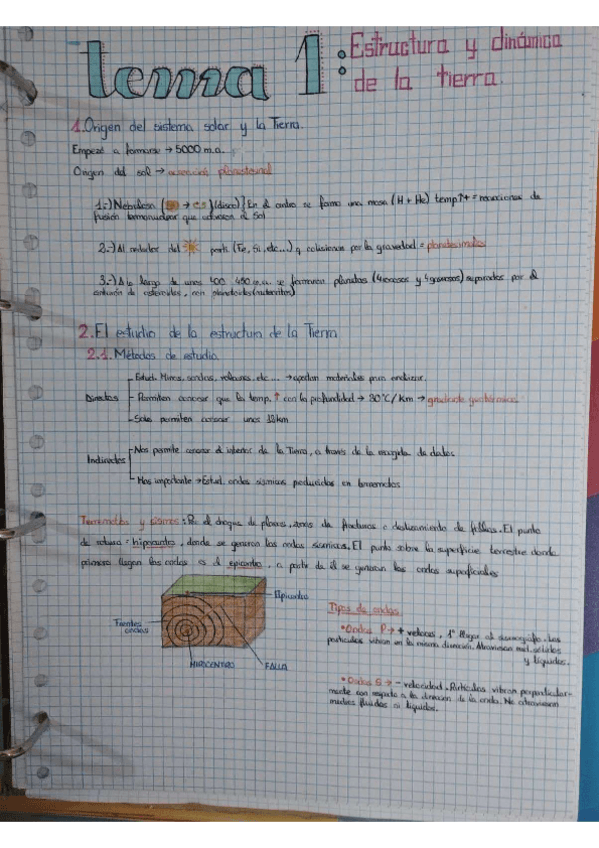 tema 1: Estructura y dinámica
de la tierra.
1. Origen del sistema solar y la Tierra.
Empezó a formarse → 5000 m.a.
Origen del sol → planetesimal
1.-) Nebulosa (disco) En el centro se forma una masa (H + He) temp↑+ = reacciones de
fusión termonuclear que el Sol
2.-) Al rededor del part. (Fe, Si, etc...) q colisionan por la gravedad = planetesimales
3.-) A lo largo de unos 400 450 m.a. se formaron planetas (4 rocosos y 4 gaseosos) separados por el
cinturón de asteroides, con planetoides (meteoritos)
2. El estudio de la estructura de la Tierra
2.1. Métodos de estudio
Directos
Estud. Minas, sondeos, volcanes, etc... → aportan materiales para analizar.
Permiten conocer que la temp. ↑ con la profundidad → 30°C/km → gradiente geotérmico
Solo permiten conocer unos km
Indirectos
Nos permite conocer el interior de la Tierra, a través de la recogida de datos
Mas importante → Estud. ondas sísmicas producidas en terremotos
Terremotos y sismos: Por el choque de placas, zonas de fracturas o deslizamiento de fallas. El punto
de rotura = hipocentro, donde se generan las ondas sísmicas. El punto sobre la superficie terrestre donde
primero llegan las ondas es el epicentro, a partir de él se generan las ondas superficiales
Epicentro
Frentes
ondas
HIPOCENTRO
FALLA
Tipos de ondas
• Ondas P → + veloces, 1ª llegar al sismógrafo. Las
partículas vibran en la misma dirección. Atraviesan mat. sólidos
y líquidos.
• Ondas S → - velocidad. Partículas vibran perpendicular-
mente con respecto a la dirección de la onda. No atraviesan
medios fluidos líquidos.